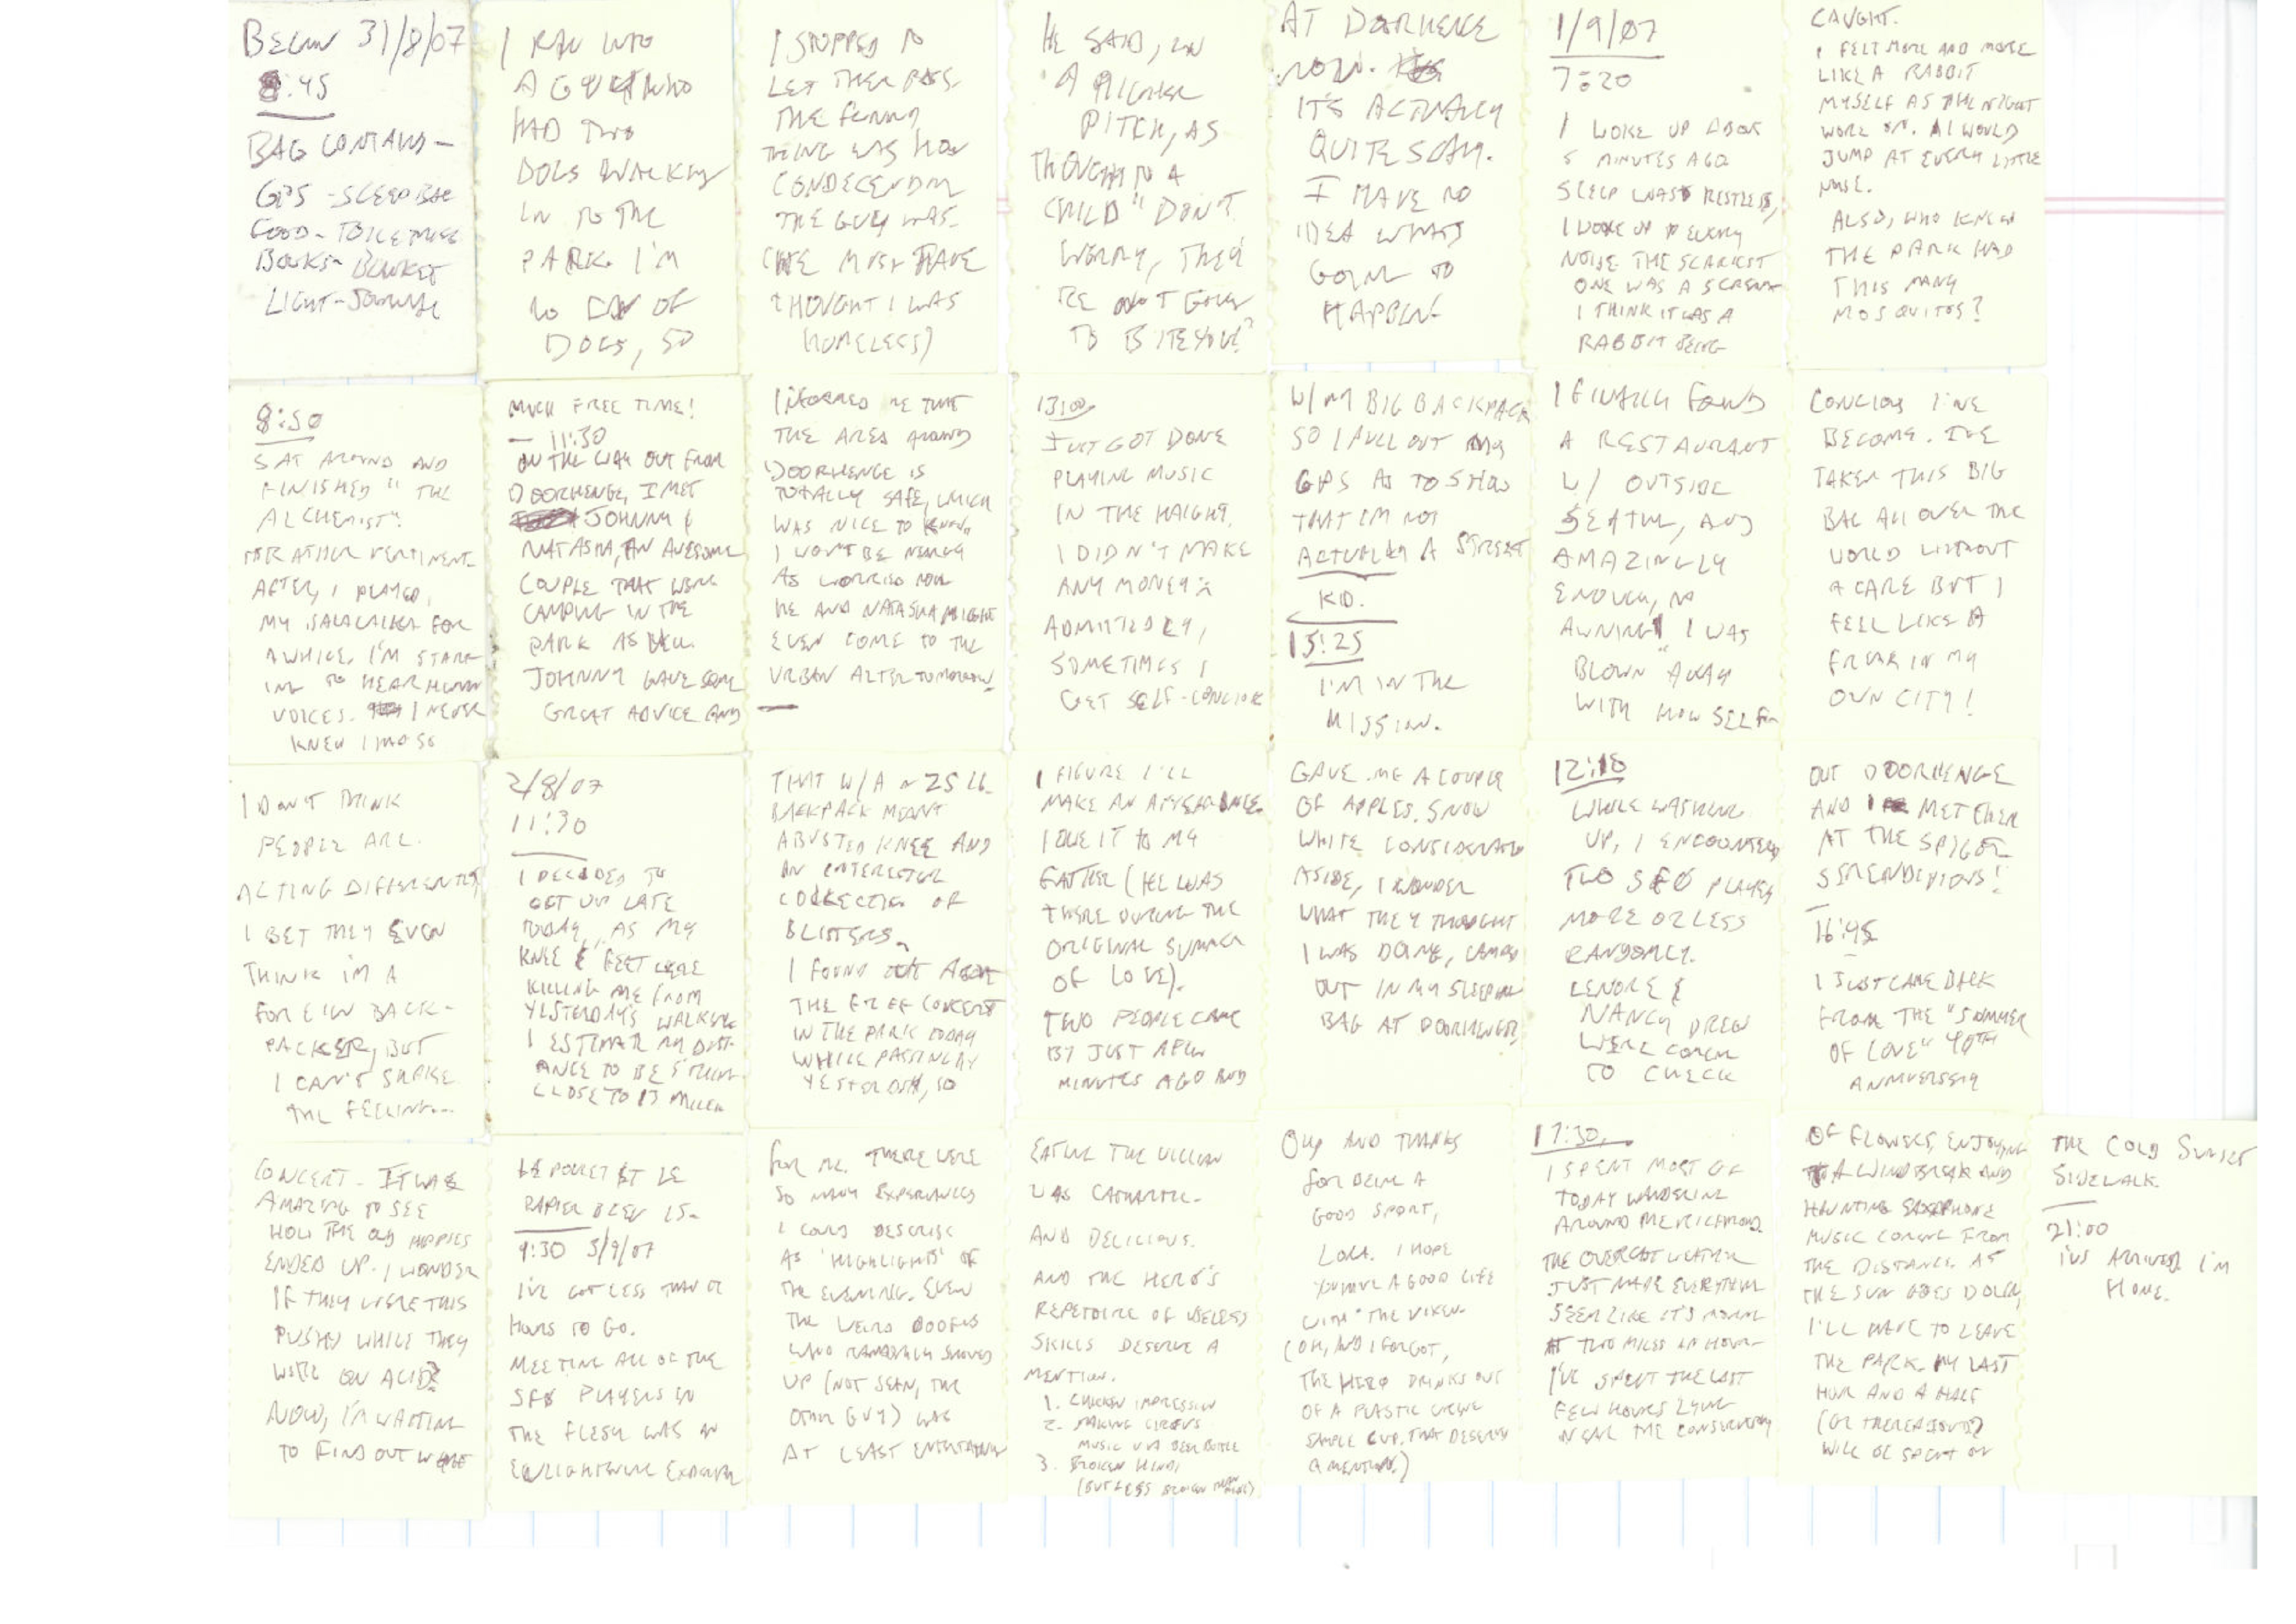 BEGIN 31/8/07
8:45
BAG CONTAINS -
GPS - SLEEP BAG
FOOD - TOILETRIES
BOOKS - BLANKET
LIGHT - JOURNAL
I RAN INTO
A GUY WHO
HAD TWO
DOGS WALKING
IN TO THE
PARK. I'M
NO FAN OF
DOGS, SO
I STOPPED TO
LET THEM PASS.
THE FUNNY
THING WAS HOW
CONDECENDING
THE GUY WAS.
(HE MUST HAVE
THOUGHT I WAS
HOMELESS)
HE SAID, IN
A HIGHER
PITCH, AS
THOUGH TO A
CHILD "DON'T
WORRY, THEY
'RE NOT GOING
TO BITE YOU!"
AT DOORHENGE
NOW.
IT'S ACTUALLY
QUITE SCARY.
I HAVE NO
IDEA WHAT'S
GOING TO
HAPPEN
1/9/07
7:20
I WOKE UP ABOUT
5 MINUTES AGO
SLEEP WAS RESTLESS,
I WOKE UP TO EVERY
NOISE THE SCARIEST
ONE WAS A SCREAM
I THINK IT WAS A
RABBIT BEING
CAUGHT.
I FELT MORE AND MORE
LIKE A RABBIT
MYSELF AS THE NIGHT
WORE ON. I WOULD
JUMP AT EVERY LITTLE
NOISE.
ALSO, WHO KNEW
THE PARK HAD
THIS MANY
MOSQUITOS?
8:50
SAT AROUND AND
FINISHED "THE
ALCHEMIST".
RATHER PERTINENT.
AFTER, I PLAYED
MY BALALAIKA FOR
AWHILE. I'M START-
ING TO HEAR HUMAN
VOICES. I NEVER
KNEW I HAD SO
MUCH FREE TIME!
— 11:30
ON THE WAY OUT FROM
DOORHENGE, I MET
JOHNNY &
NATASHA, AN AWESOME
COUPLE THAT WERE
CAMPING IN THE
PARK AS WELL.
JOHNNY GAVE SOME
GREAT ADVICE AND
INFORMED ME THAT
THE AREA AROUND
DOORHENGE IS
TOTALLY SAFE, WHICH
WAS NICE TO KNOW.
I WON'T BE NEARLY
AS WORRIED NOW
HE AND NATASHA MIGHT
EVEN COME TO THE
URBAN ALTER TOMORROW.
13:00
JUST GOT DONE
PLAYING MUSIC
IN THE HAIGHT.
I DIDN'T MAKE
ANY MONEY
ADMITTEDLY,
SOMETIMES I
GET SELF-CONCIOUS
W/ MY BIG BACKPACK
SO I PULL OUT MY
GPS AS TO SHOW
THAT I'M NOT
ACTUALLY A STREET
KID.
15:25
I'M IN THE
MISSION.
I FINALLY FOUND
A RESTAURANT
W/ OUTSIDE
SEATING, AND
AMAZINGLY
ENOUGH, NO
AWNING! I WAS
BLOWN AWAY
WITH HOW SELF-
CONCIOUS I'VE
BECOME. I'VE
TAKEN THIS BIG
BAG ALL OVER THE
WORLD WITHOUT
A CARE BUT I
FEEL LIKE A
FREAK IN MY
OWN CITY!
I DON'T THINK
PEOPLE ARE
ACTING DIFFERENTLY,
I BET THEY EVEN
THINK I'M A
FOREIGN BACK-
PACKER, BUT
I CAN'T SHAKE
THE FEELING...
2/8/07
11:30
I DECIDED TO
GET UP LATE
TODAY, AS MY
KNEE & FEET WERE
KILLING ME FROM
YESTERDAY'S WALKING
I ESTIMATE MY DIST-
ANCE TO BE
CLOSE TO 13 MILES
THAT W/ A ~ 25 LB.
BACKPACK MEANT
A BUSTED KNEE AND
AN INTERESTING
COLLECTION OF
BLISTERS.
I FOUND OUT ABOUT
THE FREE CONCERT
IN THE PARK TODAY
WHILE PASSING BY
YESTERDAY, SO
I FIGURE I'LL
MAKE AN APPEARANCE.
I OWE IT TO MY
FATHER (HE WAS
THERE DURING THE
ORIGINAL SUMMER
OF LOVE).
TWO PEOPLE CAME
BY JUST A FEW
MINUTES AGO AND
GAVE ME A COUPLE
OF APPLES. SNOW
WHITE CONSIDERATIONS
ASIDE, I WONDER
WHAT THEY THOUGHT
I WAS DOING, CAMPED
OUT IN MY SLEEPING
BAG AT DOORHENGE.
12:10
WHILE WASHING
UP, I ENCOUNTERED
TWO SF0 PLAYERS
MORE OR LESS
RANDOMLY.
LENORE &
NANCY DREW
WERE COMING
TO CHECK
OUT DOORHENGE
AND I MET THEM
AT THE SPIGOT.
SERENDIPIOUS!
16:45
I JUST CAME BACK
FROM THE "SUMMER
OF LOVE" 40TH
ANNIVERSARY
CONCERT. IT WAS
AMAZING TO SEE
HOW THE OLD HIPPIES
ENDED UP. I WONDER
IF THEY WERE THIS
PUSHY WHILE THEY
WERE ON ACID?
NOW, I'M WAITING
TO FIND OUT WHERE
LE POULET ET LE
RAPIER BLEU IS.
9:30 3/9/07
I'VE GOT LESS THAN 12
HOURS TO GO.
MEETING ALL OF THE
SF0 PLAYERS IN
THE FLESH WAS AN
ENLIGHTENING EXPERIENCE
FOR ME. THERE WERE
SO MANY EXPERIENCES
I COULD DESCRIBE
AS 'HIGHLIGHTS' OF
THE EVENING. EVEN
THE WEIRD DOOFUS
WHO RANDOMLY SHOWED
UP (NOT SEAN, THE
OTHER GUY) WAS
AT LEAST ENTERTAINING
EATING THE VILLIAN
WAS CATHARTIC.
AND DELICIOUS.
AND THE HERO'S
REPETOIRE OF USELESS
SKILLS DESERVE A
MENTION.
1. CHICKEN IMPRESSION
2. MAKING CIRCUS
MUSIC VIA BEER BOTTLE
3. BROKEN HINDI
(BUT LESS BROKEN THAN MINE)
OH, AND THANKS
FOR BEING A
GOOD SPORT,
LOLA. I HOPE
YOU HAVE A GOOD LIFE
WITH THE VIXEN.
(OH, AND I FORGOT,
THE HERO DRINKS OUT
OF A PLASTIC URINE
SAMPLE CUP. THAT DESERVES
A MENTION.)
17:30
I SPENT MOST OF
TODAY WANDERING
AROUND THE RICHMOND.
THE OVERCAST WEATHER
JUST MADE EVERYTHING
SEEM LIKE IT'S MOVING
AT TWO MILES AN HOUR.
I'VE SPENT THE LAST
FEW HOURS LYING
NEAR THE CONSERVATORY
OF FLOWERS, ENJOYING
A WINDBREAK AND
HAUNTING SAXOPHONE
MUSIC COMING FROM
THE DISTANCE. AS
THE SUN GOES DOWN,
I'LL HAVE TO LEAVE
THE PARK. MY LAST
HOUR AND A HALF
(OR THEREABOUTS)
WILL BE SPENT ON
THE COLD SUNSET
SIDEWALK.
21:00
I'VE ARRIVED. I'M
HOME.